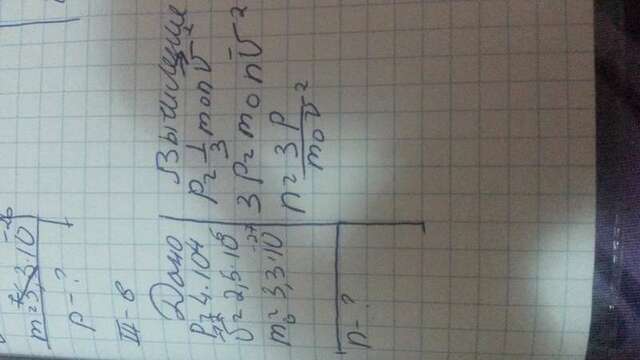 m = 3,3·10⁻²⁶
p - ?
III - в
Дано
P = 4·10⁴
v̄² = 2,5·10⁶
m₀ = 3,3·10⁻²⁷
n - ?
Вычисление
P = 1/3 m₀nv̄²
3P = m₀nv̄²
n = 3P/m₀v̄²